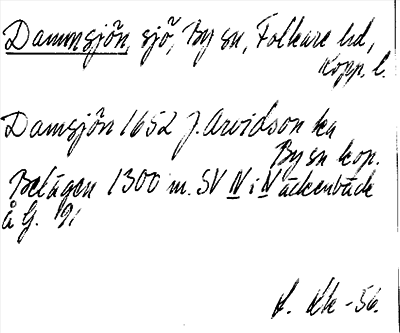 Dammsjön, sjö, By sn, Folkare hd,
Kopp. l.
Damsjön 1652 J. Arvidson ka
By sn kop.
Belägen 1300 m. SV IV i Väckenbäck
å G. 91
-56.